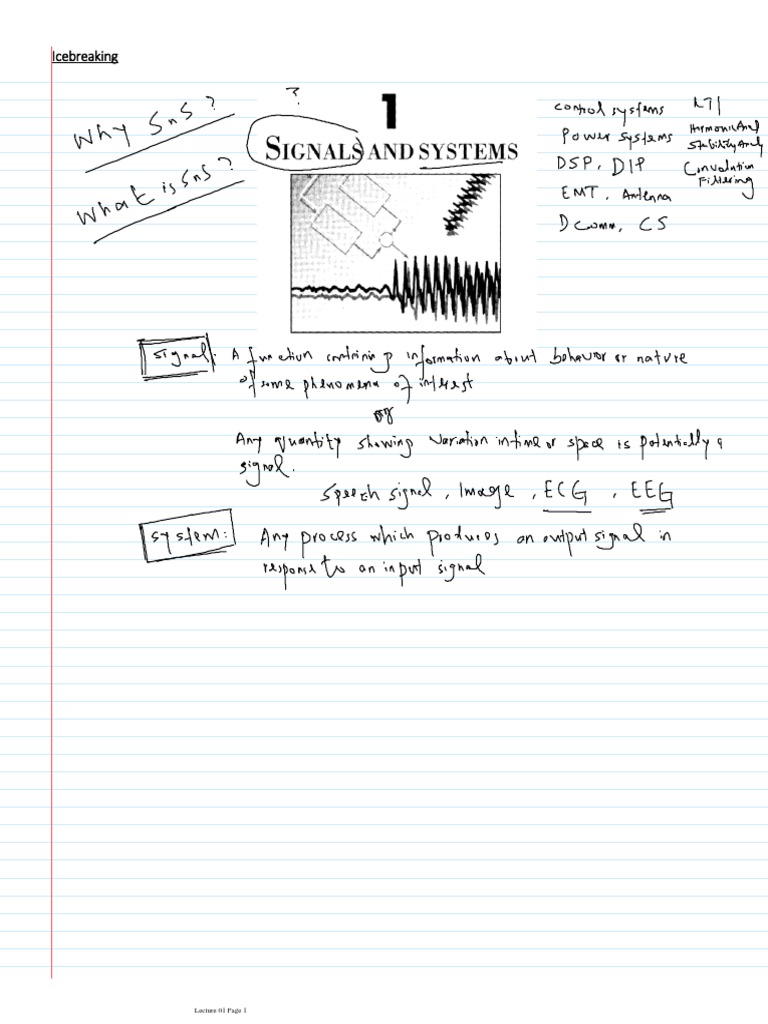 Icebreaking
Why SnS?
What is SnS?
?
1
SIGNALS AND SYSTEMS
control systems LTI
Power systems Harmonic Anal
Stability Analy
DSP, DIP Convolution
Filtering
EMT, Antenna
D Comm, CS
Signal: A function containing information about behavior or nature
of some phenomena of interest
or
Any quantity showing variation in time or space is potentially a
signal.
Speech signal, Image, ECG, EEG
System: Any process which produces an output signal in
response to an input signal
Lecture 01 Page 1